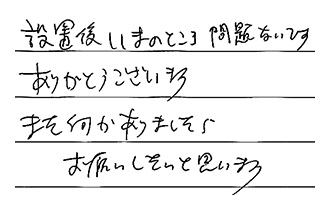 設置後いまのところ問題ないです
ありがとうございます
また何かありましたら
お願いしたいと思います